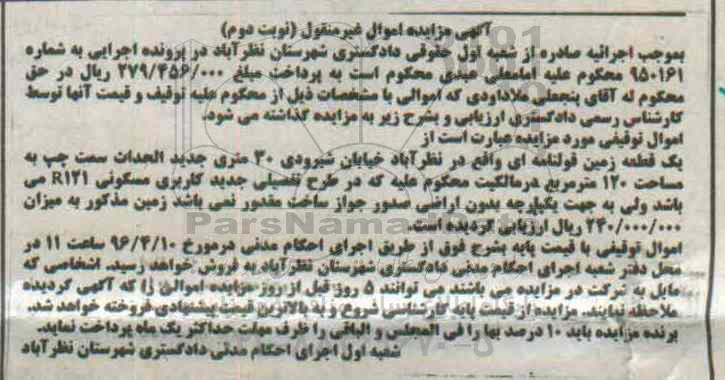 آگهی مزایده اموال غیرمنقول (نوبت دوم)
بموجب اجرائیه صادره از شعبه اول حقوقی دادگستری شهرستان نظرآباد در پرونده اجرایی به شماره
۹۵۰۱۶۱ محکوم علیه امامعلی عبدی محکوم است به پرداخت مبلغ ۲۷۹/۴۵۶/۰۰۰ ریال در حق
محکوم له آقای پنجعلی ملاداودی که اموالی با مشخصات ذیل از محکوم علیه توقیف و قیمت آنها توسط
کارشناس رسمی دادگستری ارزیابی و بشرح زیر به مزایده گذاشته می شود.
اموال توقیفی مورد مزایده عبارت است از
یک قطعه زمین قولنامه ای واقع در نظرآباد خیابان شیرودی ۳۰ متری جدید الحداث سمت چپ به
مساحت ۱۲۰ مترمربع درمالکیت محکوم علیه که در طرح تفصیلی جدید کاربری مسکونی R۱۲۱ می
باشد ولی به جهت یکپارچه بدون اراضی صدور جواز ساخت مقدور نمی باشد زمین مذکور به میزان
۲۴۰/۰۰۰/۰۰۰ ریال ارزیابی گردیده است.
اموال توقیفی با قیمت پایه بشرح فوق از طریق اجرای احکام مدنی درمورخ ۹۶/۴/۱۰ ساعت ۱۱ در
محل دفتر شعبه اجرای احکام مدنی دادگستری شهرستان نظرآباد به فروش خواهد رسید. اشخاصی که
مایل به شرکت در مزایده می باشند می توانند ۵ روز قبل از روز مزایده اموالی را که آگهی گردیده
ملاحظه نمایند. مزایده از قیمت پایه کارشناسی شروع و به بالاترین قیمت پیشنهادی فروخته خواهد شد.
برنده مزایده باید ۱۰ درصد بها را فی المجلس و الباقی را ظرف مهلت حداکثر یک ماه پرداخت نماید.
شعبه اول اجرای احکام مدنی دادگستری شهرستان نظرآباد
ParsNamadData